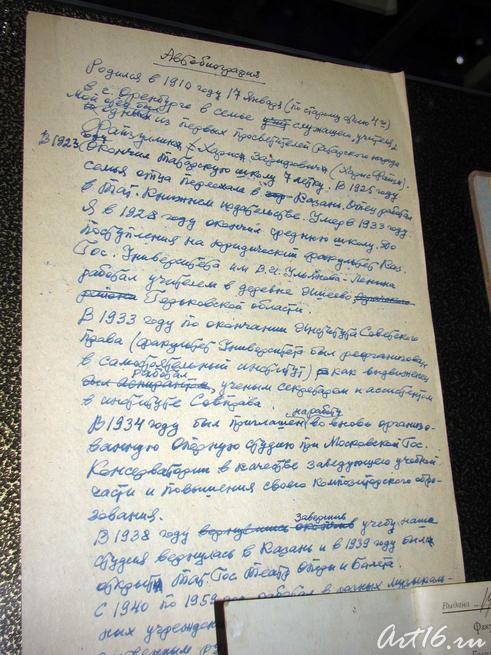 Автобиография
Родился в 1910 году 17 января (по старому стилю 4го)
в г. Оренбурге в семье служащего, учителя,
Мой отец был одним из первых просветителей татарского народа
Харис Файзуллин
В 1923 году окончил татарскую школу 7 летку. В 1925 году
семья отца переехала в Казань. Отец работал
в Тат. Книжном издательстве. Умер в 1933 году.
Я в 1928 году окончил среднюю школу. До
поступления на юридический факультет Каз.
Гос. Университета им В.И. Ульянова-Ленина
работал учителем в деревне
района Горьковской области.
В 1933 году по окончании Института Советского
Права (факультет Университета был реорганизован
в самостоятельный институт) как выдвиженец
работал ученым секретарем и ассистентом
в институте Совправа.
В 1934 году был приглашен на работу во вновь организо-
ванную Оперную студию при Московской Гос.
Консерватории в качестве заведующего учебной
части и повышения своего композиторского обра-
зования.
В 1938 году завершив учебу наша
студия вернулась в Казань и в 1939 году был
открыт Тат. Гос Театр Оперы и Балета.
С 1940 по 1959 год работал в разных музыкаль-
ных учрежден
Выдана
Art16.ru